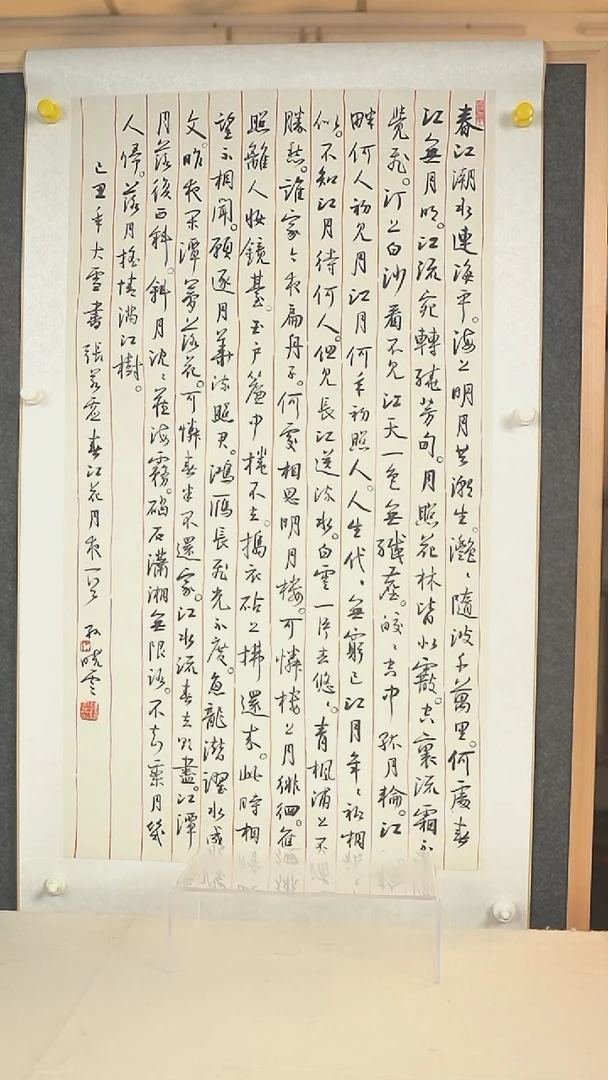 春江潮水連海平。海上明月共潮生。灔〻隨波千萬里。何處春
江無月明。江流宛轉繞芳甸。月照花林皆似霰。空裏流霜不
覺飛。汀上白沙看不見江天一色無纖塵。皎〻空中孤月輪。江
畔何人初見月江月何年初照人。人生代〻無窮已江月年〻祗相
似。不知江月待何人。但見長江送流水。白雲一片去悠〻。青楓浦上不
勝愁。誰家今夜扁舟子。何處相思明月樓。可憐樓上月徘徊。應
照離人妝鏡臺。玉戶簾中捲不去。搗衣砧上拂還來。此時相
望不相聞。願逐月華流照君。鴻雁長飛光不度。魚龍潛躍水成
文。昨夜閑潭夢落花。可憐春半不還家。江水流春去欲盡。江潭
月落復西斜。斜月沈〻藏海霧。碣石瀟湘無限路。不知乘月幾
人歸。落月搖情滿江樹。
己丑年大雪書張若虛春江花月夜一首 孫曉雲